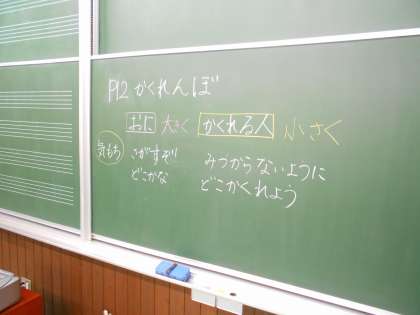 P12 かくれんぼ
おに 大きく かくれる人 小さく
気もち さがすぞ!! みつからないように
どこかな どこかくれよう